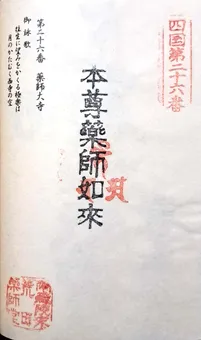 四国第二十六番
本尊藥師如來
第二十六番 薬師大寺
御詠歌
往生に望みをかくる極楽は
月のかたむく西寺の空
荒田
藥師堂